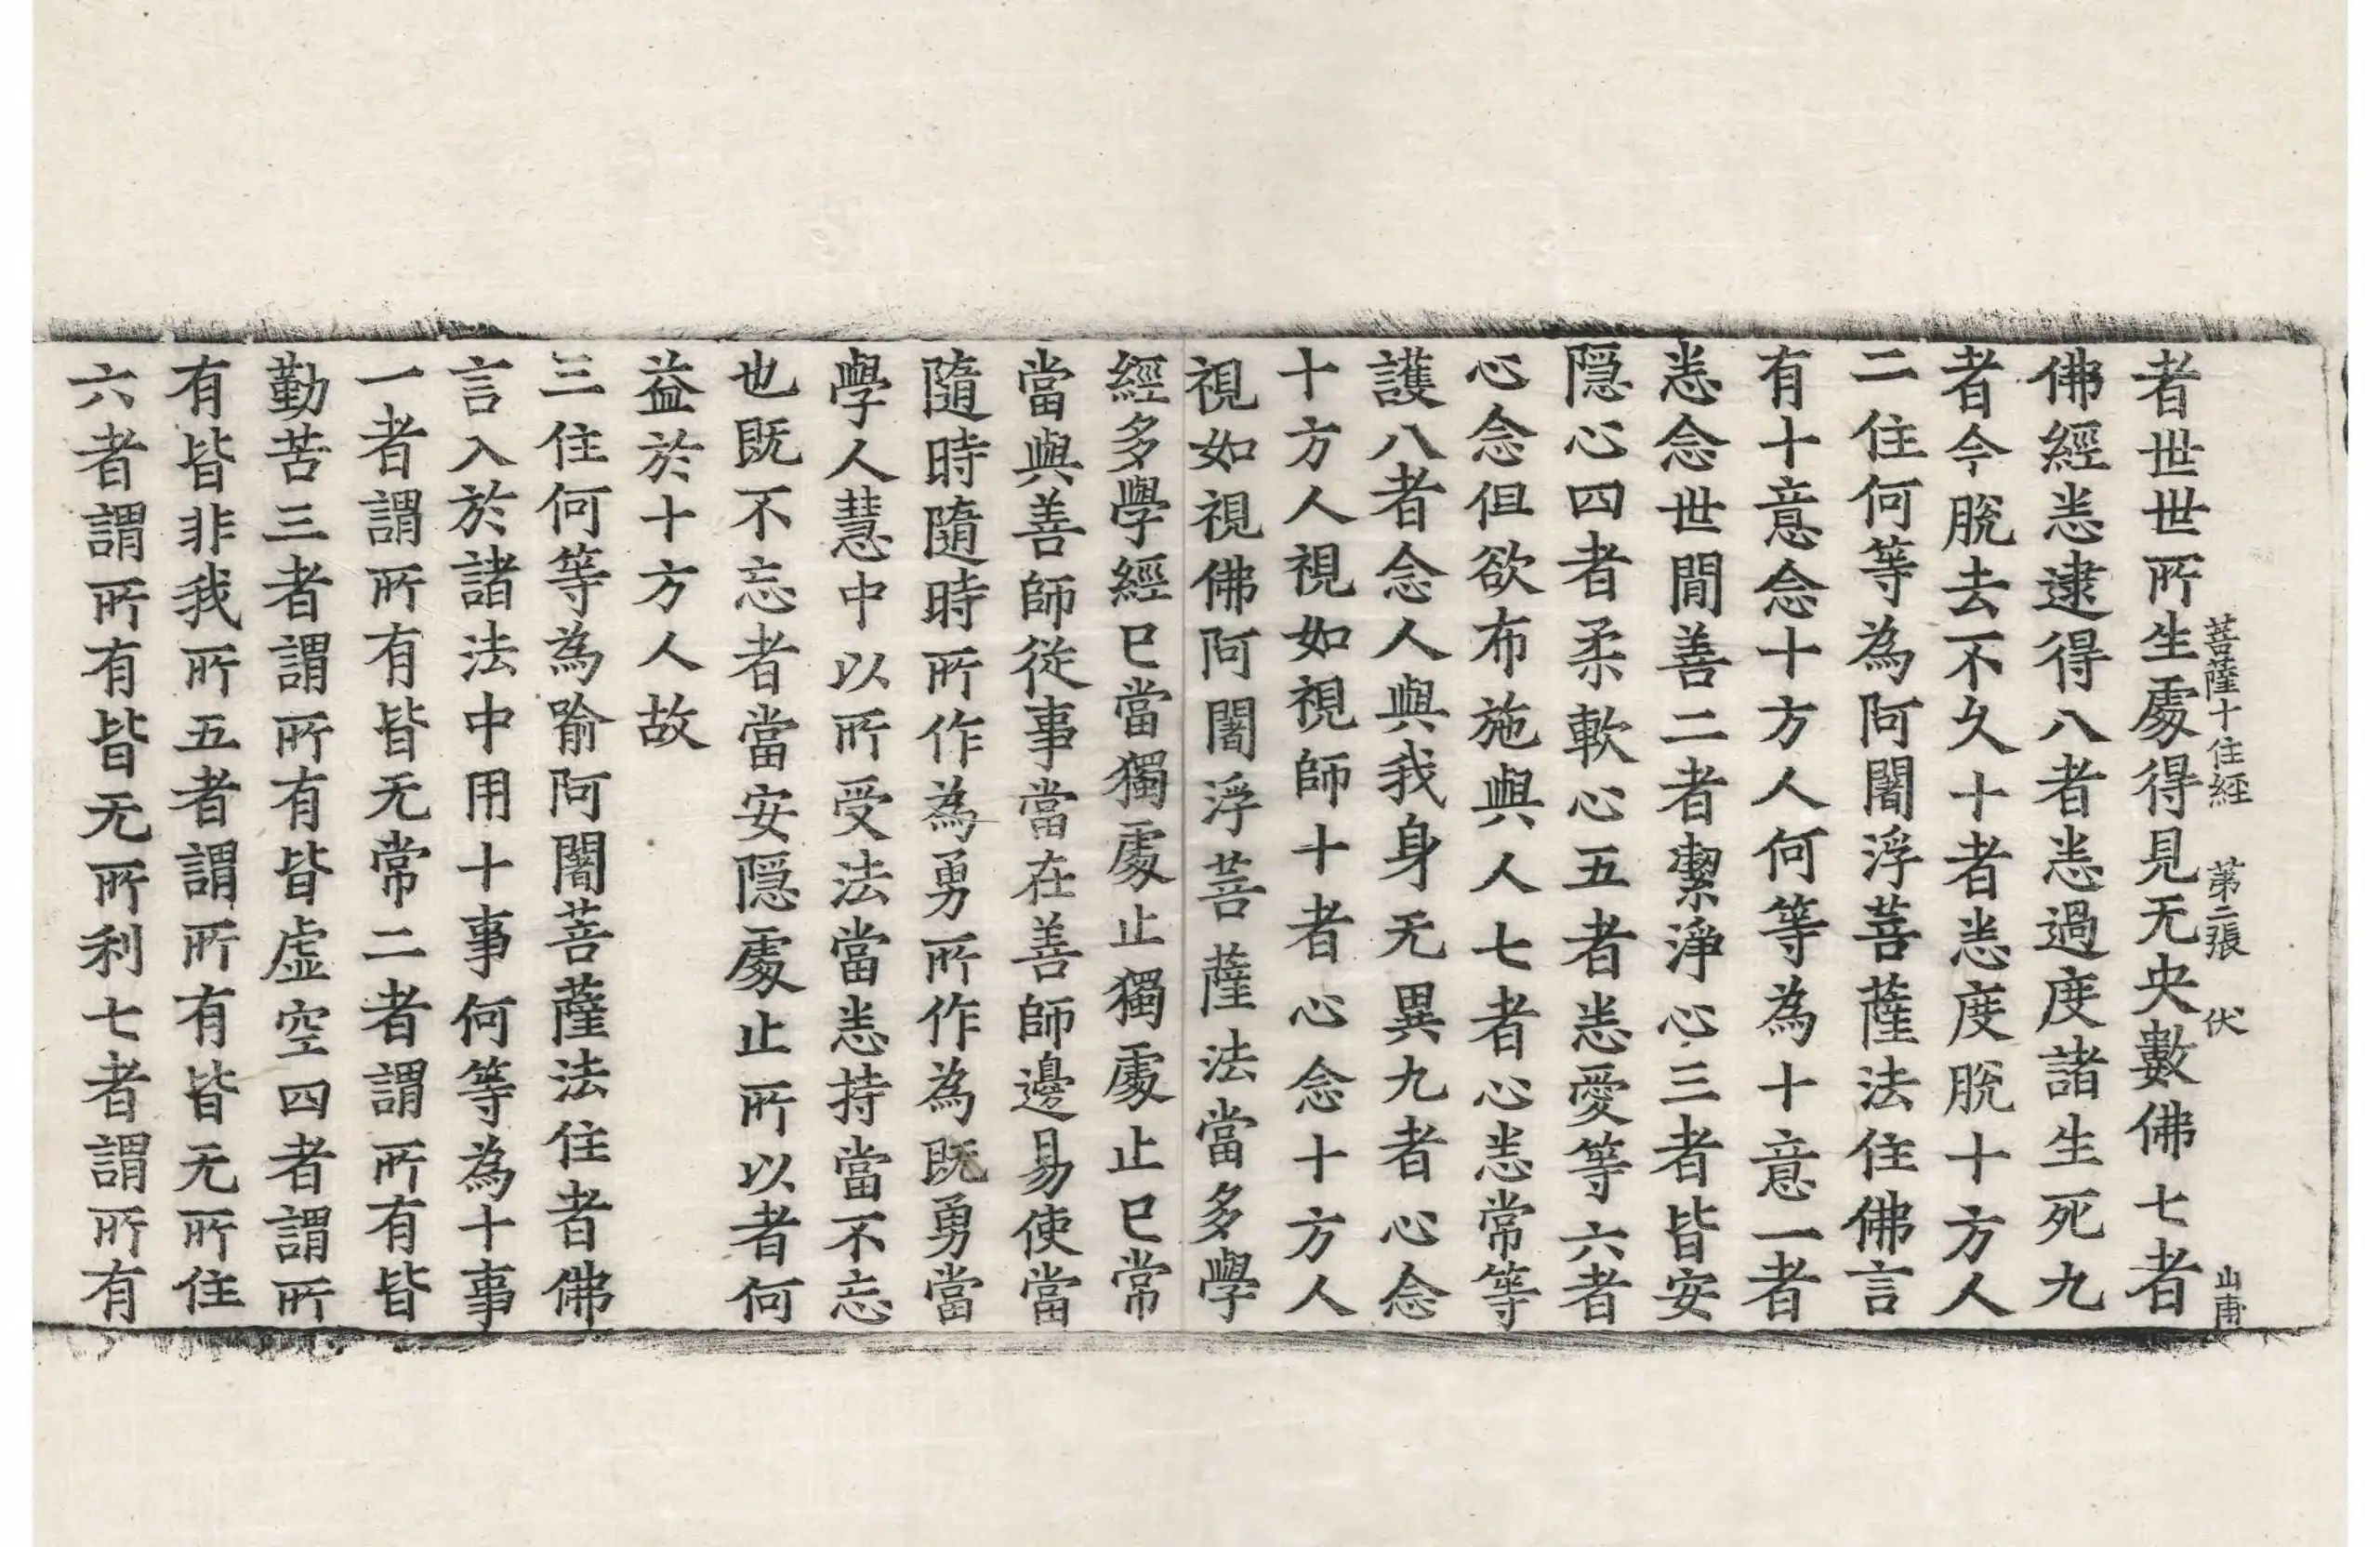 菩薩十住經 第二張 伏 山甫
者世世所生處得見无央數佛七者
佛經恙逮得八者恙過度諸生死九
者今脫去不久十者恙度脫十方人
二住何等為阿闍浮菩薩法住佛言
有十意念十方人何等為十意一者
恙念世間善二者潔淨心三者皆安
隱心四者柔軟心五者恙愛等六者
心念但欲布施與人七者心恙常等
護八者念人與我身无異九者心念
十方人視如視師十者心念十方人
視如視佛阿闍浮菩薩法當多學
經多學經已當獨處止獨處止已常
當與善師從事當在善師邊易使當
隨時隨時所作為勇所作為既勇當
學人慧中以所受法當悉持當不忘
也既不忘者當安隱處止所以者何
益於十方人故
三住何等為踰阿闍菩薩法住者佛
言入於諸法中用十事何等為十事
一者謂所有皆无常二者謂所有皆
勤苦三者謂所有皆虛空四者謂所
有皆非我所五者謂所有皆无所住
六者謂所有皆无所利七者謂所有